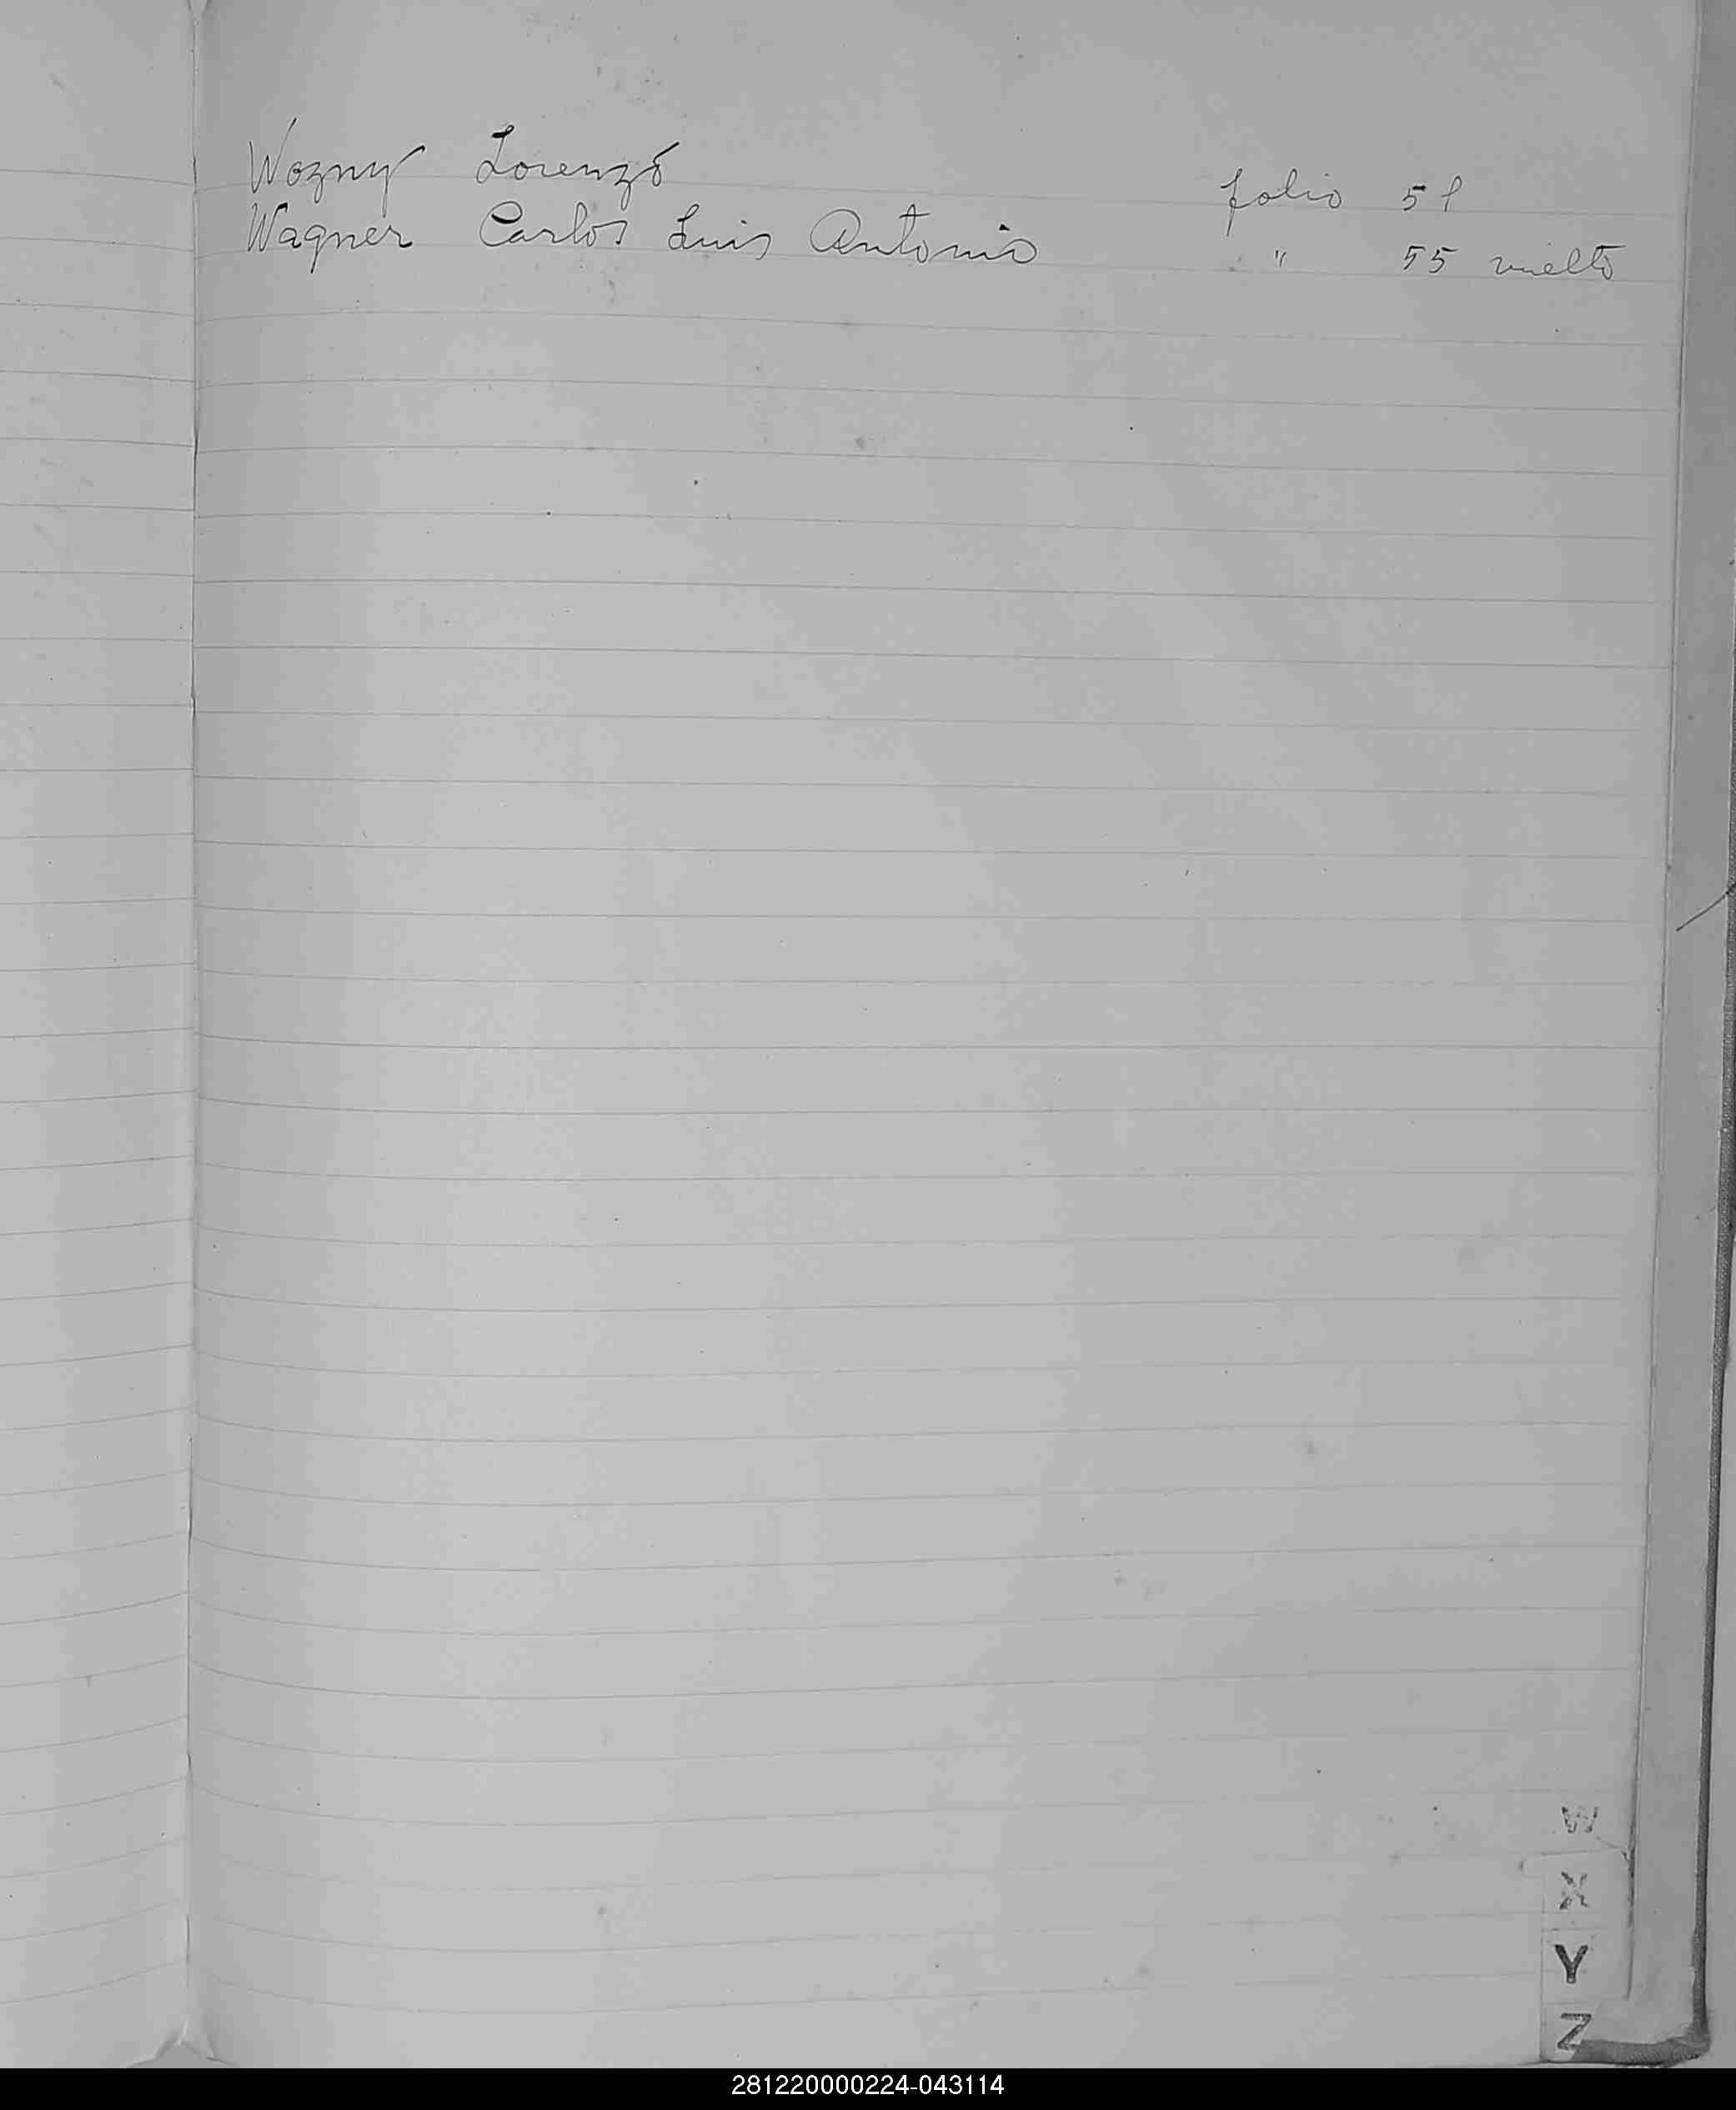 Wozny Lorenzo folio 51
Wagner Carlos Luis Antonio " 55 vuelto
W
X
Y
Z
281220000224-043114